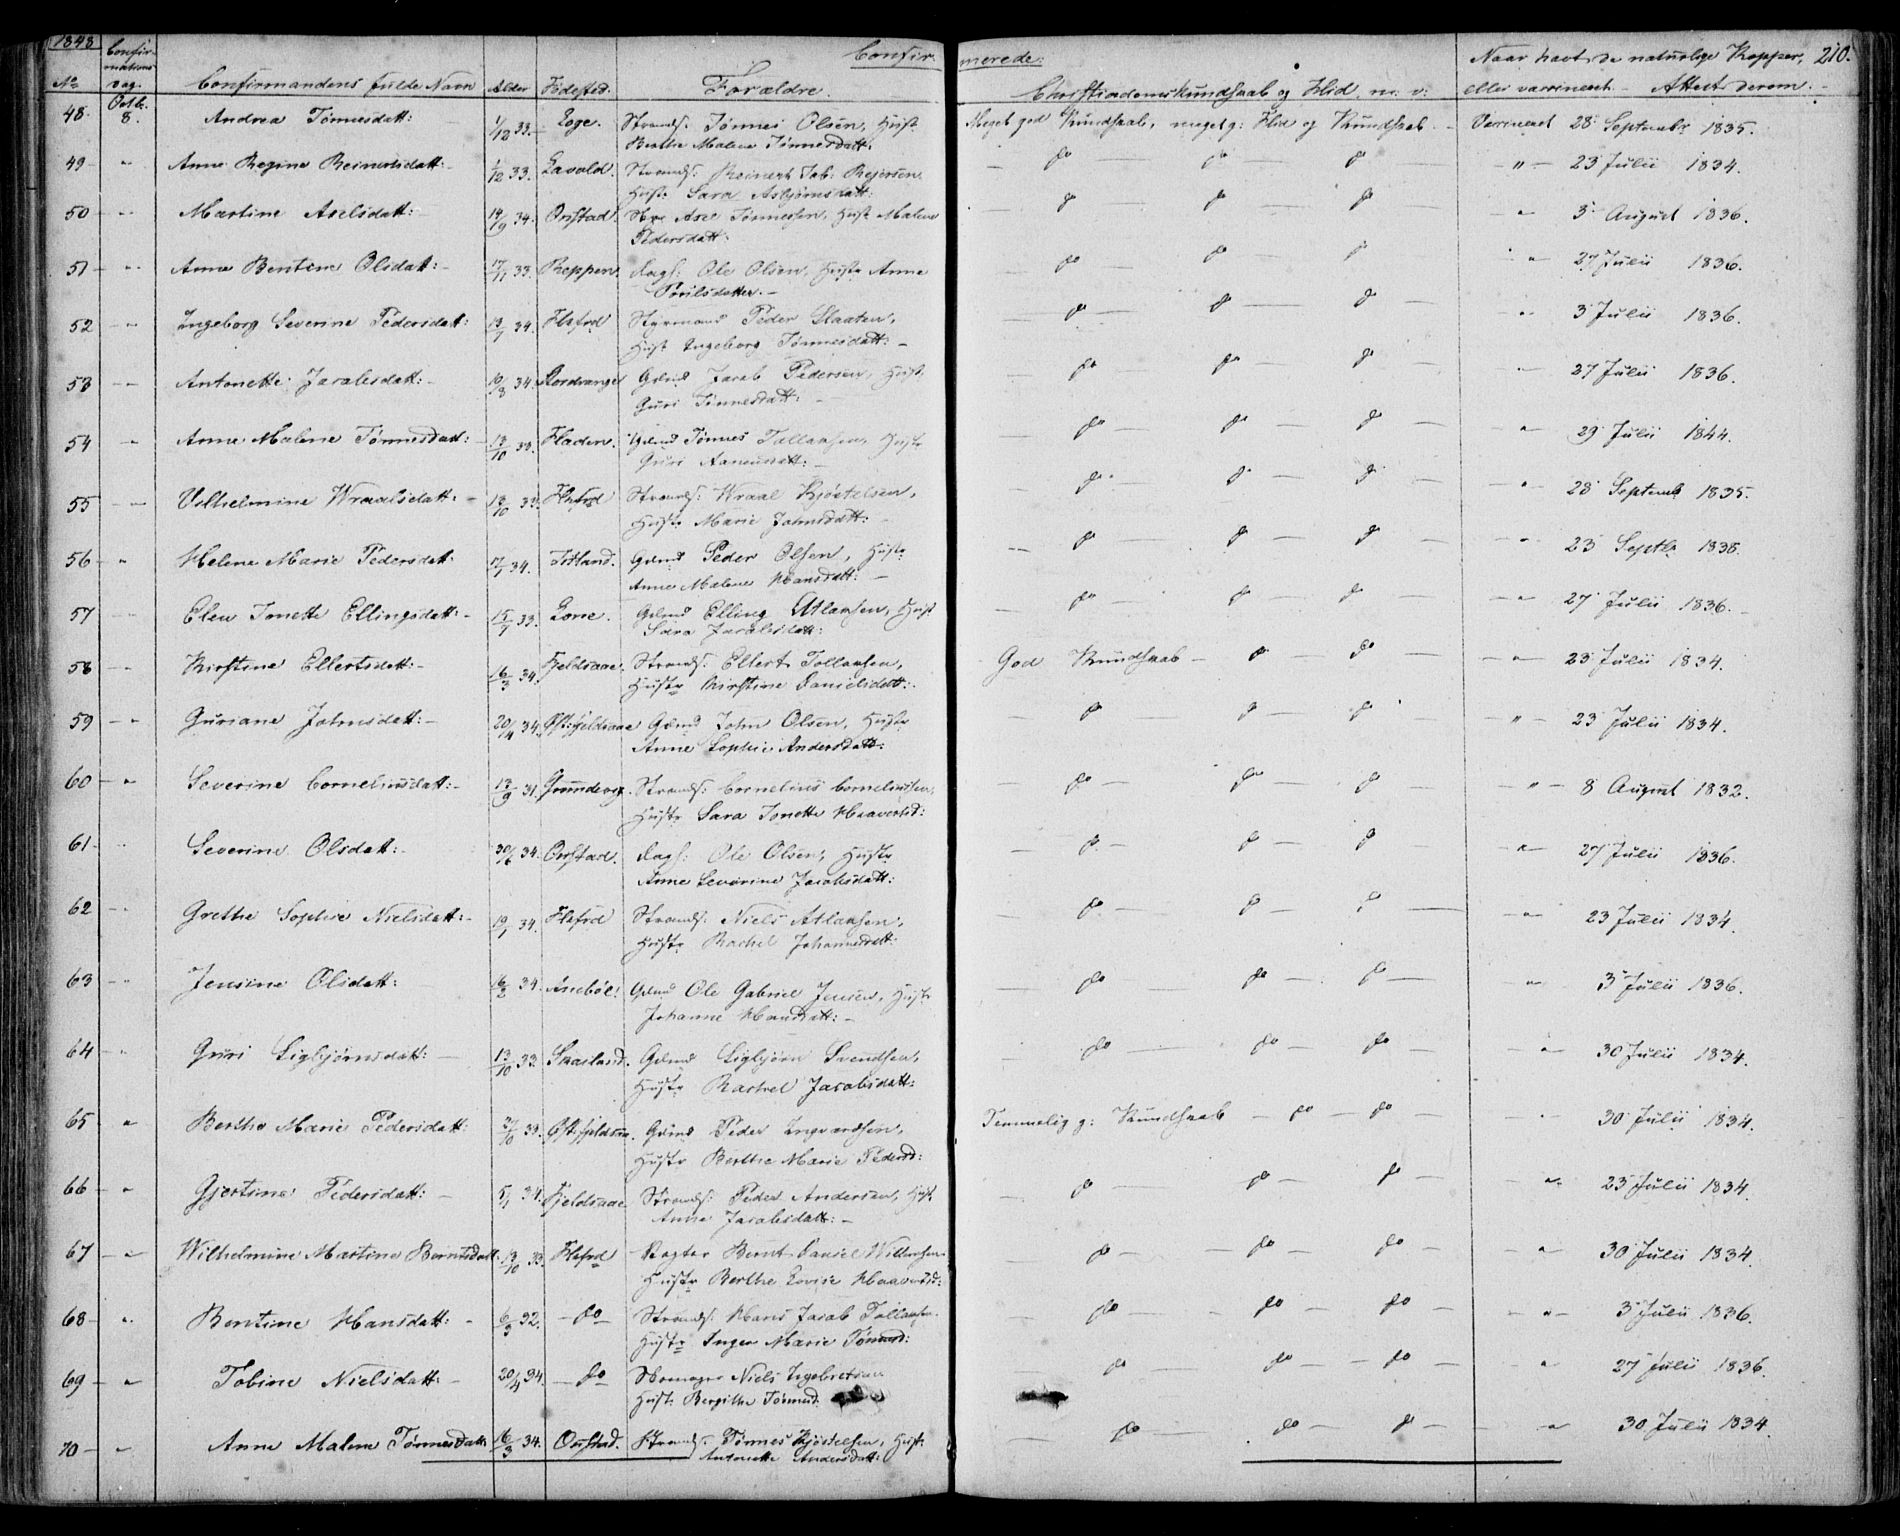 1848
Confir-
mations
dag.
Confir-
merede.
Naar havt de naturlige Kopper, 210.
No
Confirmandens fulde Navn
Alder
Fødested.
Forældre.
Christendomskundskab og Flid m: v:
eller vaccineret. Attest derom.
48. Octb. 8. Andrea Tønnesdatt: 1/12 33. Loge. Strands: Tønnes Olsen, Hust. Meget god Kundskab, meget g: Flid og Kundskab. Vaccineret 28 Septembr 1835.
Berthe Malene Tønnesdatt:
49 " Anne Regine Reinertsdatt: 1/12 33. Lavold. Strands: Reinert Jab: Rejersen do do do " 23 Julii 1834.
Hust: Sara Asbjørnsdatt:
50 " Martine Axelsdatt: 14/9 34. Onstad. Axel Tønnessen, Hust Malene do do do " 3 August 1836.
Pedersdatt:
51 " Anne Bentine Olsdatt: 17/11 33. Reppen. Dags: Ole Olsen, Hustr Anne do do do " 27 Julii 1836.
Povilsdatter.
52 " Ingeborg Severine Pedersdatt: 13/7 34. Flefrd Styrmand Peder Slaaten, do do do " 3 Julii 1836.
Hust Ingeborg Tønnesdatt:
53 " Antonette Jacobsdatt: 10/3 34. Gdmd Jacob Pedersen, Hust do do do " 27 Julii 1836.
Guri Tønnesdatt:
54 " Anne Malene Tønnesdatt: 13/10 33. Fladen. Gdmd Tønnes Tollaksen, Hustr do do do " 29 Julii 1844.
Guri
55 " Vilhelmine Wraalsdatt: 13/10 33. Flefrd Strands: Wraal Kjøstelsen, do do do " 28 Septemb 1835.
Hustr Marie Johnsdatt:
56 " Helene Marie Pedersdatt: 17/1 34. Gdmd Peder Olsen, Hustr do do do " 23 Septbr 1835.
Anne Malene Hansdatt:
57 " Elen Tonette Ellingsdatt: 15/7 33. Lone. Gdmd Elling Atlaksen, Hust do do do " 27 Julii 1836.
Sara Jacobsdatt:
58 " Kirstine Ellertsdatt: 16/3 34. Fjeldsaae. Strands: Ellert Tollaksen, God Kundskab do do " 23 Julii 1834.
Hustr Kirstine Danielsdatt:
59 " Guriane Johnsdatt: 20/4 34. Øst: Fjeldsaae Gdmd John Olsen, Hustr do do do " 23 Julii 1834.
Anne Sophie Andersdatt:
60 " Severine Corneliusdatt: 13/9 31. Strands: Cornelius Corneliussen, do do do " 8 August 1832.
Hustr Sara Tonette Haaversd:
61 " Severine Olsdatt: 30/6 34. Onstad. Dags: Ole Olsen, Hustr do do do " 27 Julii 1836.
Anne Severine Jacobsdatt:
62 " Grethe Sophie Nielsdatt: 19/1 34. Flefrd Strands: Niels Atlaksen, do do do " 23 Julii 1834.
Hustr Rachel Johannesdatt:
63 " Jensine Olsdatt: 16/2 34. Anebøl: Gdmd Ole Gabriel Jensen, Hustr do do do " 3 Julii 1836.
Johanne Hansdatt:
64 " Guri Sigbjørnsdatt: 13/10 33. Gdmd Sigbjørn Svendsen, do do do " 30 Julii 1834.
Hustr Rachel Jacobsdatt:
65 " Berthe Marie Pedersdatt: 27/10 33. Øst: Fjeldsaae. Gdmd Peder Ingvardsen, Temmelig g: Kundskab do do " 30 Julii 1834.
Hustr Berthe Marie Pedersd:
66 " Gjertine Pedersdatt: 5/1 34. Fjeldsaae Strands: Peder Andersen, Hust do do do " 23 Julii 1834.
Anne Jacobsdatt:
67 " Wilhelmine Martine Berntsdatt. 13/10 33. Flefrd Vægter Bernt Daniel Willumsen do do do " 30 Julii 1834.
Hustr Berthe Lovise Haaversd:
68 " Bentine Hansdatt: 6/3 32. do Strands: Hans Jacob Tollaksen do do do " 3 Julii 1836.
Hustr Inger Marie Tønnesd:
69 " Tobine Nielsdatt: 20/4 34. do Skomager Niels Ingebretsen do do do " 27 Julii 1836.
Hust: Bergithe Tønnesd
70 " Anne Malene Tønnesdatt. 16/3 34. Onstad. Strands: Tønnes Kjøstelsen, Hust: do do do " 30 Julii 1834.
Antonette Andersdatt: